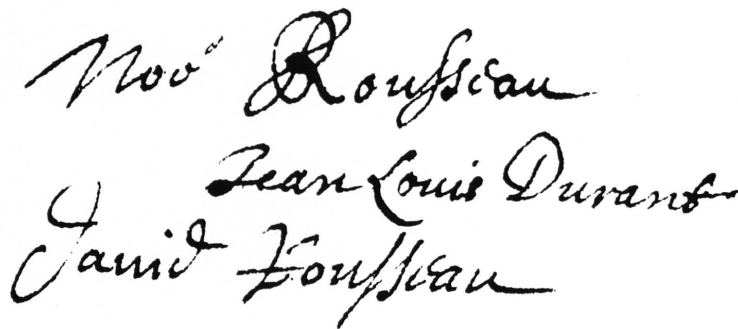 Noé Rousseau
Jean Louis Durant
David Rousseau